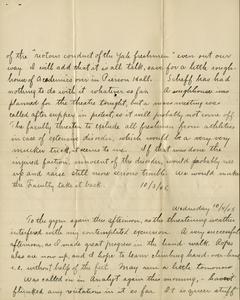 of the "riotous conduct of the Yale freshmen" even out our
way. I will add that it is all talk, save for a little rough-
house of Academics over in Pierson Hall. Scheff. has had
nothing to do with it whatsoever so far. A roughhouse was
planned for the theatre tonight, but a mass meeting was
called after supper in protest, so it will probably not come off.
The faculty threaten to exclude all freshmen from athletics
in case of extensive disorder, which would be a very very
mucker trick, it seems to me. If that was done the
injured faction, innocent of the disorder, would probably rise
up and raise still more serious trouble. We would make
the Faculty take it back. 10/3/05
Wednesday 10/4/05
To the gym again this afternoon, as the threatening weather
interfered with my contemplated excursion. A very successful
afternoon, as I made great progress in the hand walk. Ropes
also are now up, and I hope to learn climbing hand-over-hand
i.e. without help of the feet. May run a little tomorrow
Was called on in Analyt again this morning, - haven't
flunked any recitation in it so far. It is queer stuff